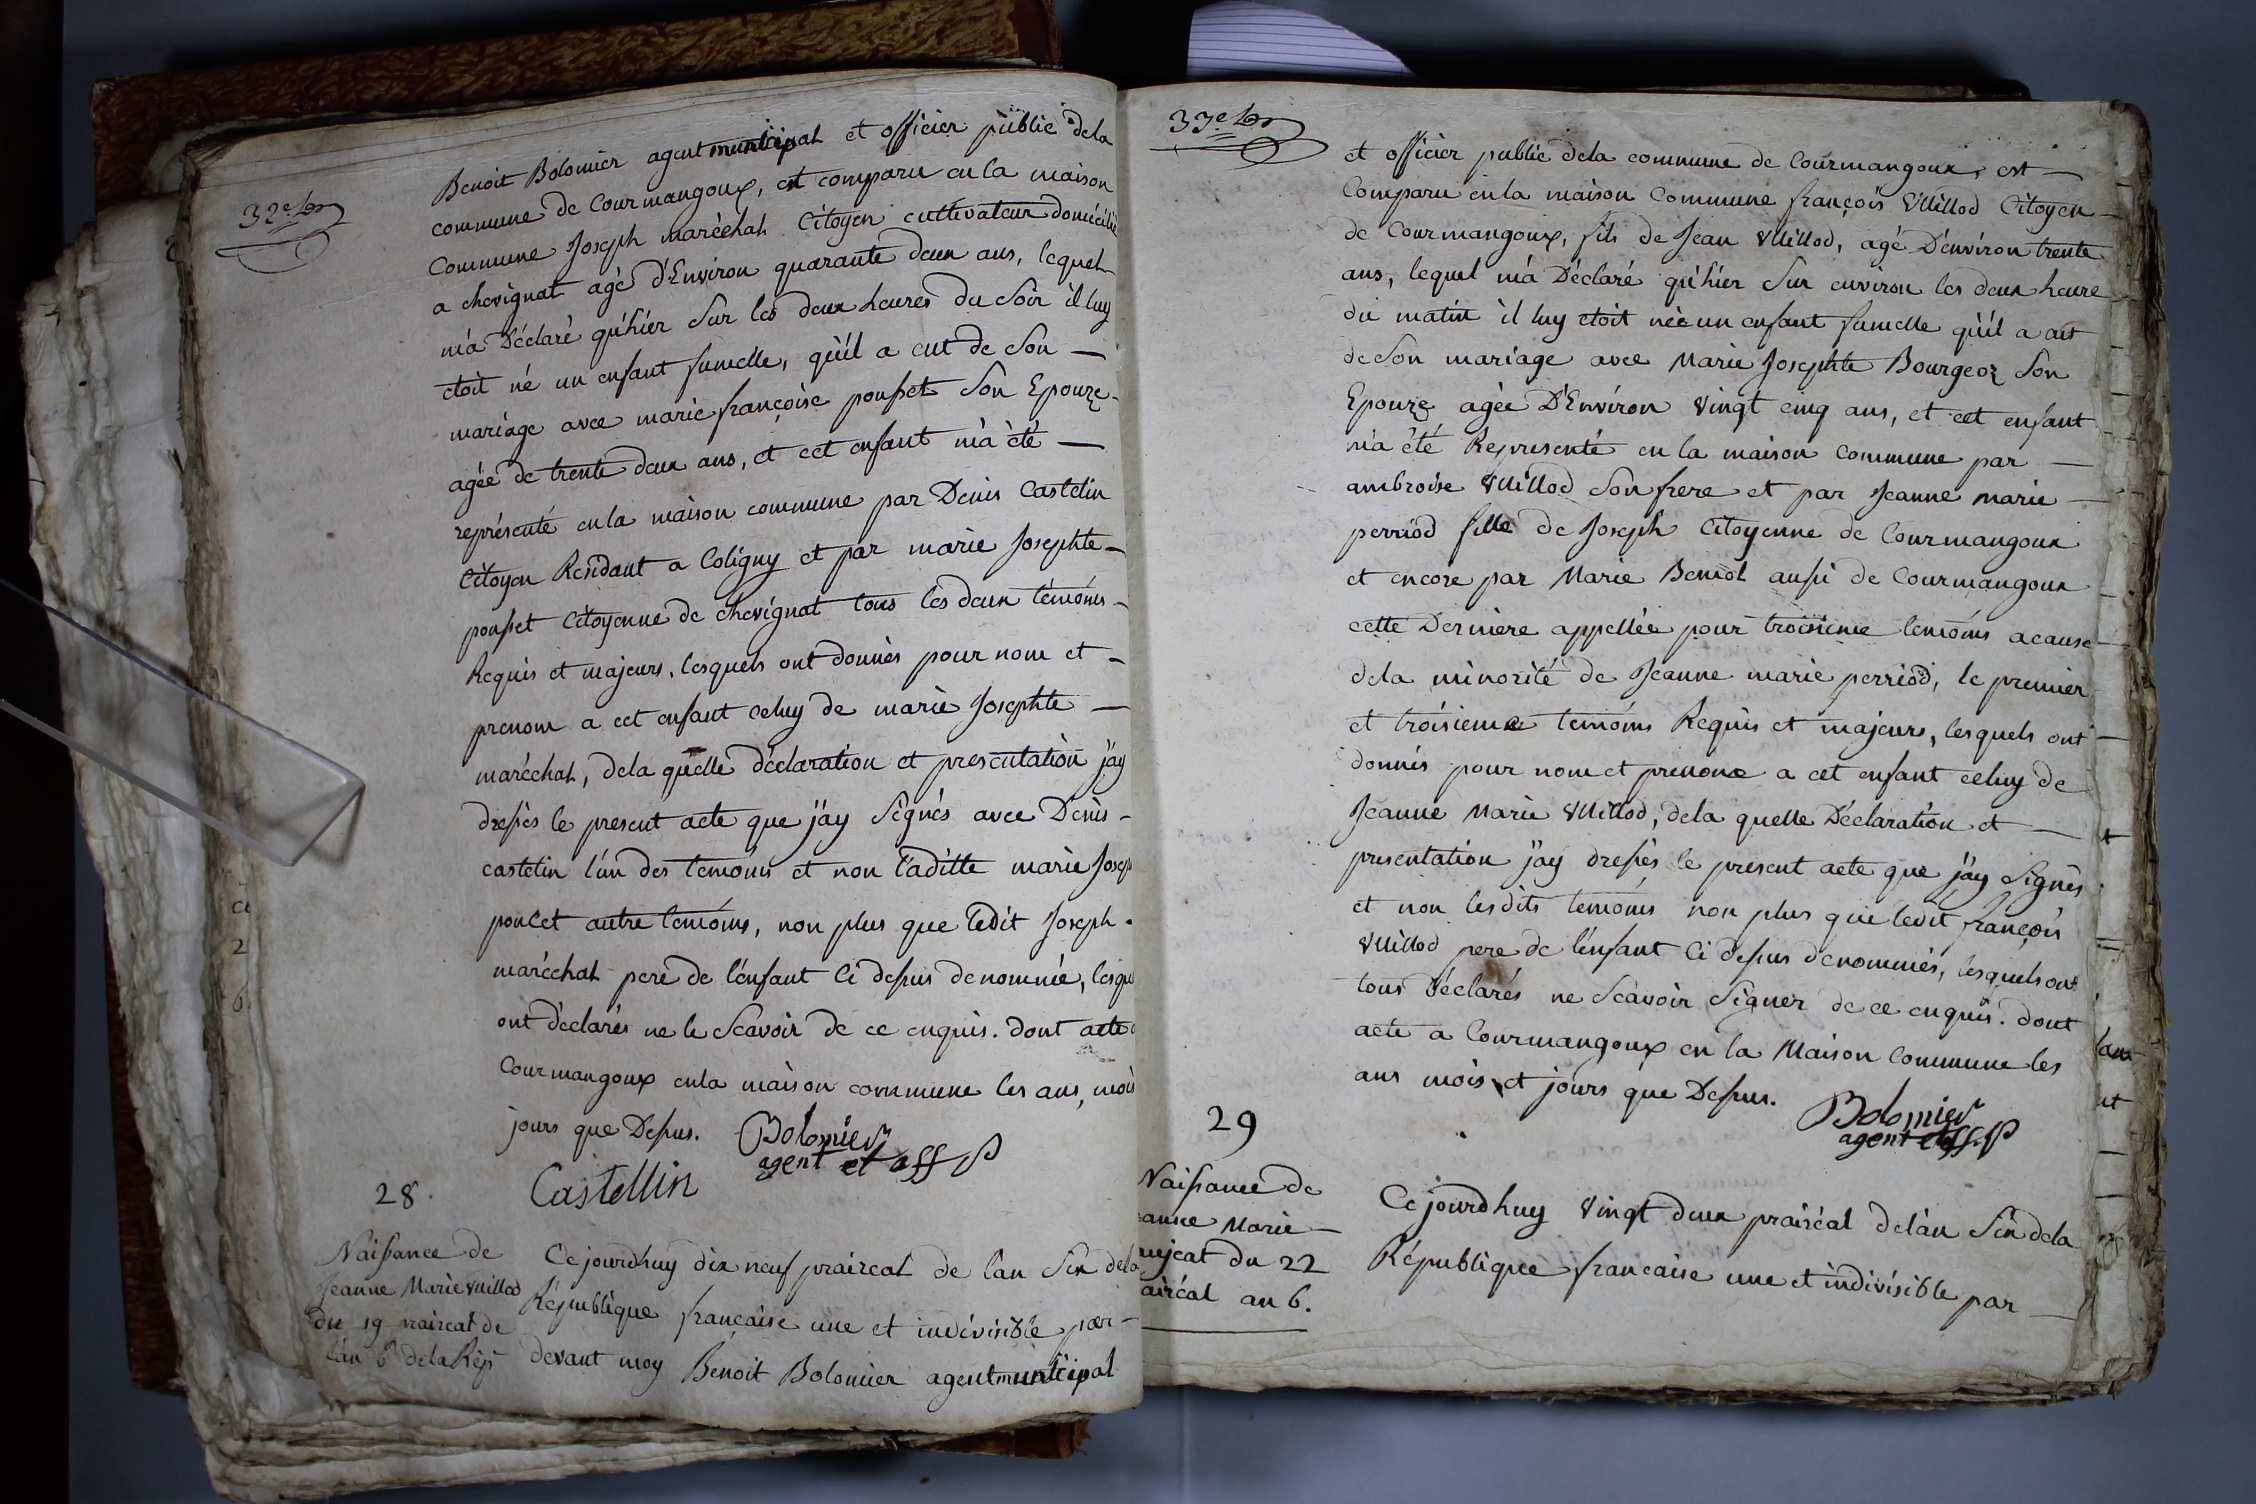 32e
Benoit Bolomier agent municipal et officier public dela
commune de Courmangoux, est comparu en la maison
commune Joseph maréchal Citoyen cultivateur domicilié
a chevignat agé d'Environ quarante deux ans, lequel
m'a Déclaré qu'hier Sur les deux heures du Soir il luy
etoit né un enfant fumelle, qu'il a eut de Son —
mariage avec marie françoise pousset Son Epouze
agée de trente deux ans, et cet enfant m'a été —
représenté en la maison commune par Denis Castelin
Citoyen Residant a Coligny et par marie Josephte —
pousset Citoyenne de chevignat tous les deux témoins —
Requis et majeurs, lesquels ont donnés pour nom et —
prenom a cet enfant celuy de marie Josephte —
maréchal, dela quelle déclaration et presentation j'ay
dressés le present acte que j'ay Signés avec Denis —
castelin l'un des temoins et non laditte marie Josep
poncet autre temoins, non plus que ledit Joseph
maréchal pere de l'enfant Ci dessus denommée, lesqu
ont déclarés ne le Scavoir de ce enquis. dont acte
Courmangoux en la maison commune les ans, mois
jours que Dessus. Bolomier
agent et off P
Castellin
28.
Naissance de
Jeanne Marie vuillod
du 19 prairéal de
l'an 6e dela Rép
Ce jourdhuy dix neuf praireal de l'an Six dela
République française une et indivisible par —
devant moy Benoit Bolomier agent municipal
33e
et officier public dela commune de Courmangoux, est —
Comparu en la maison Commune françois Vuillod Citoyen
de Courmangoux, fils de Jean Vuillod, agé D'environ trente
ans, lequel m'a Déclaré qu'hier Sur environ les deux heure
du matin il luy etoit née un enfant fumelle qu'il a eut
de Son mariage avec Marie Josephte Bourgeoz Son
Epouze agée D'Environ Vingt cinq ans, et cet enfant
m'a été Representé en la maison Commune par —
ambroise Vuillod Son frere et par Jeanne marie —
perriod fille de Joseph Citoyenne de Courmangoux
et encore par Marie Beniol aussi de Courmangoux
cette Derniere appellée pour troisieme temoins acause
dela minorité de Jeanne marie perriod, le premier
et troisieme temoins Requis et majeurs, lesquels ont
donnés pour nom et prenom a cet enfant celuy de
Jeanne Marie Vuillod, dela quelle Déclaration et —
presentation j'ay dressés le present acte que j'ay Signés
et non lesdits temoins non plus que ledit françois
Vuillod pere de l'enfant Ci dessus denommés, lesquels ont
tous Déclarés ne Scavoir Signer de ce enquis. dont
acte a Courmangoux en la Maison Commune les
ans mois et jours que Dessus. Bolomier
agent et off. P
29
Naissance de
eanne Marie —
aujeat du 22
airéal an 6.
Ce jourdhuy Vingt deux prairéal de l'an Six dela
République francaise une et indivisible par —